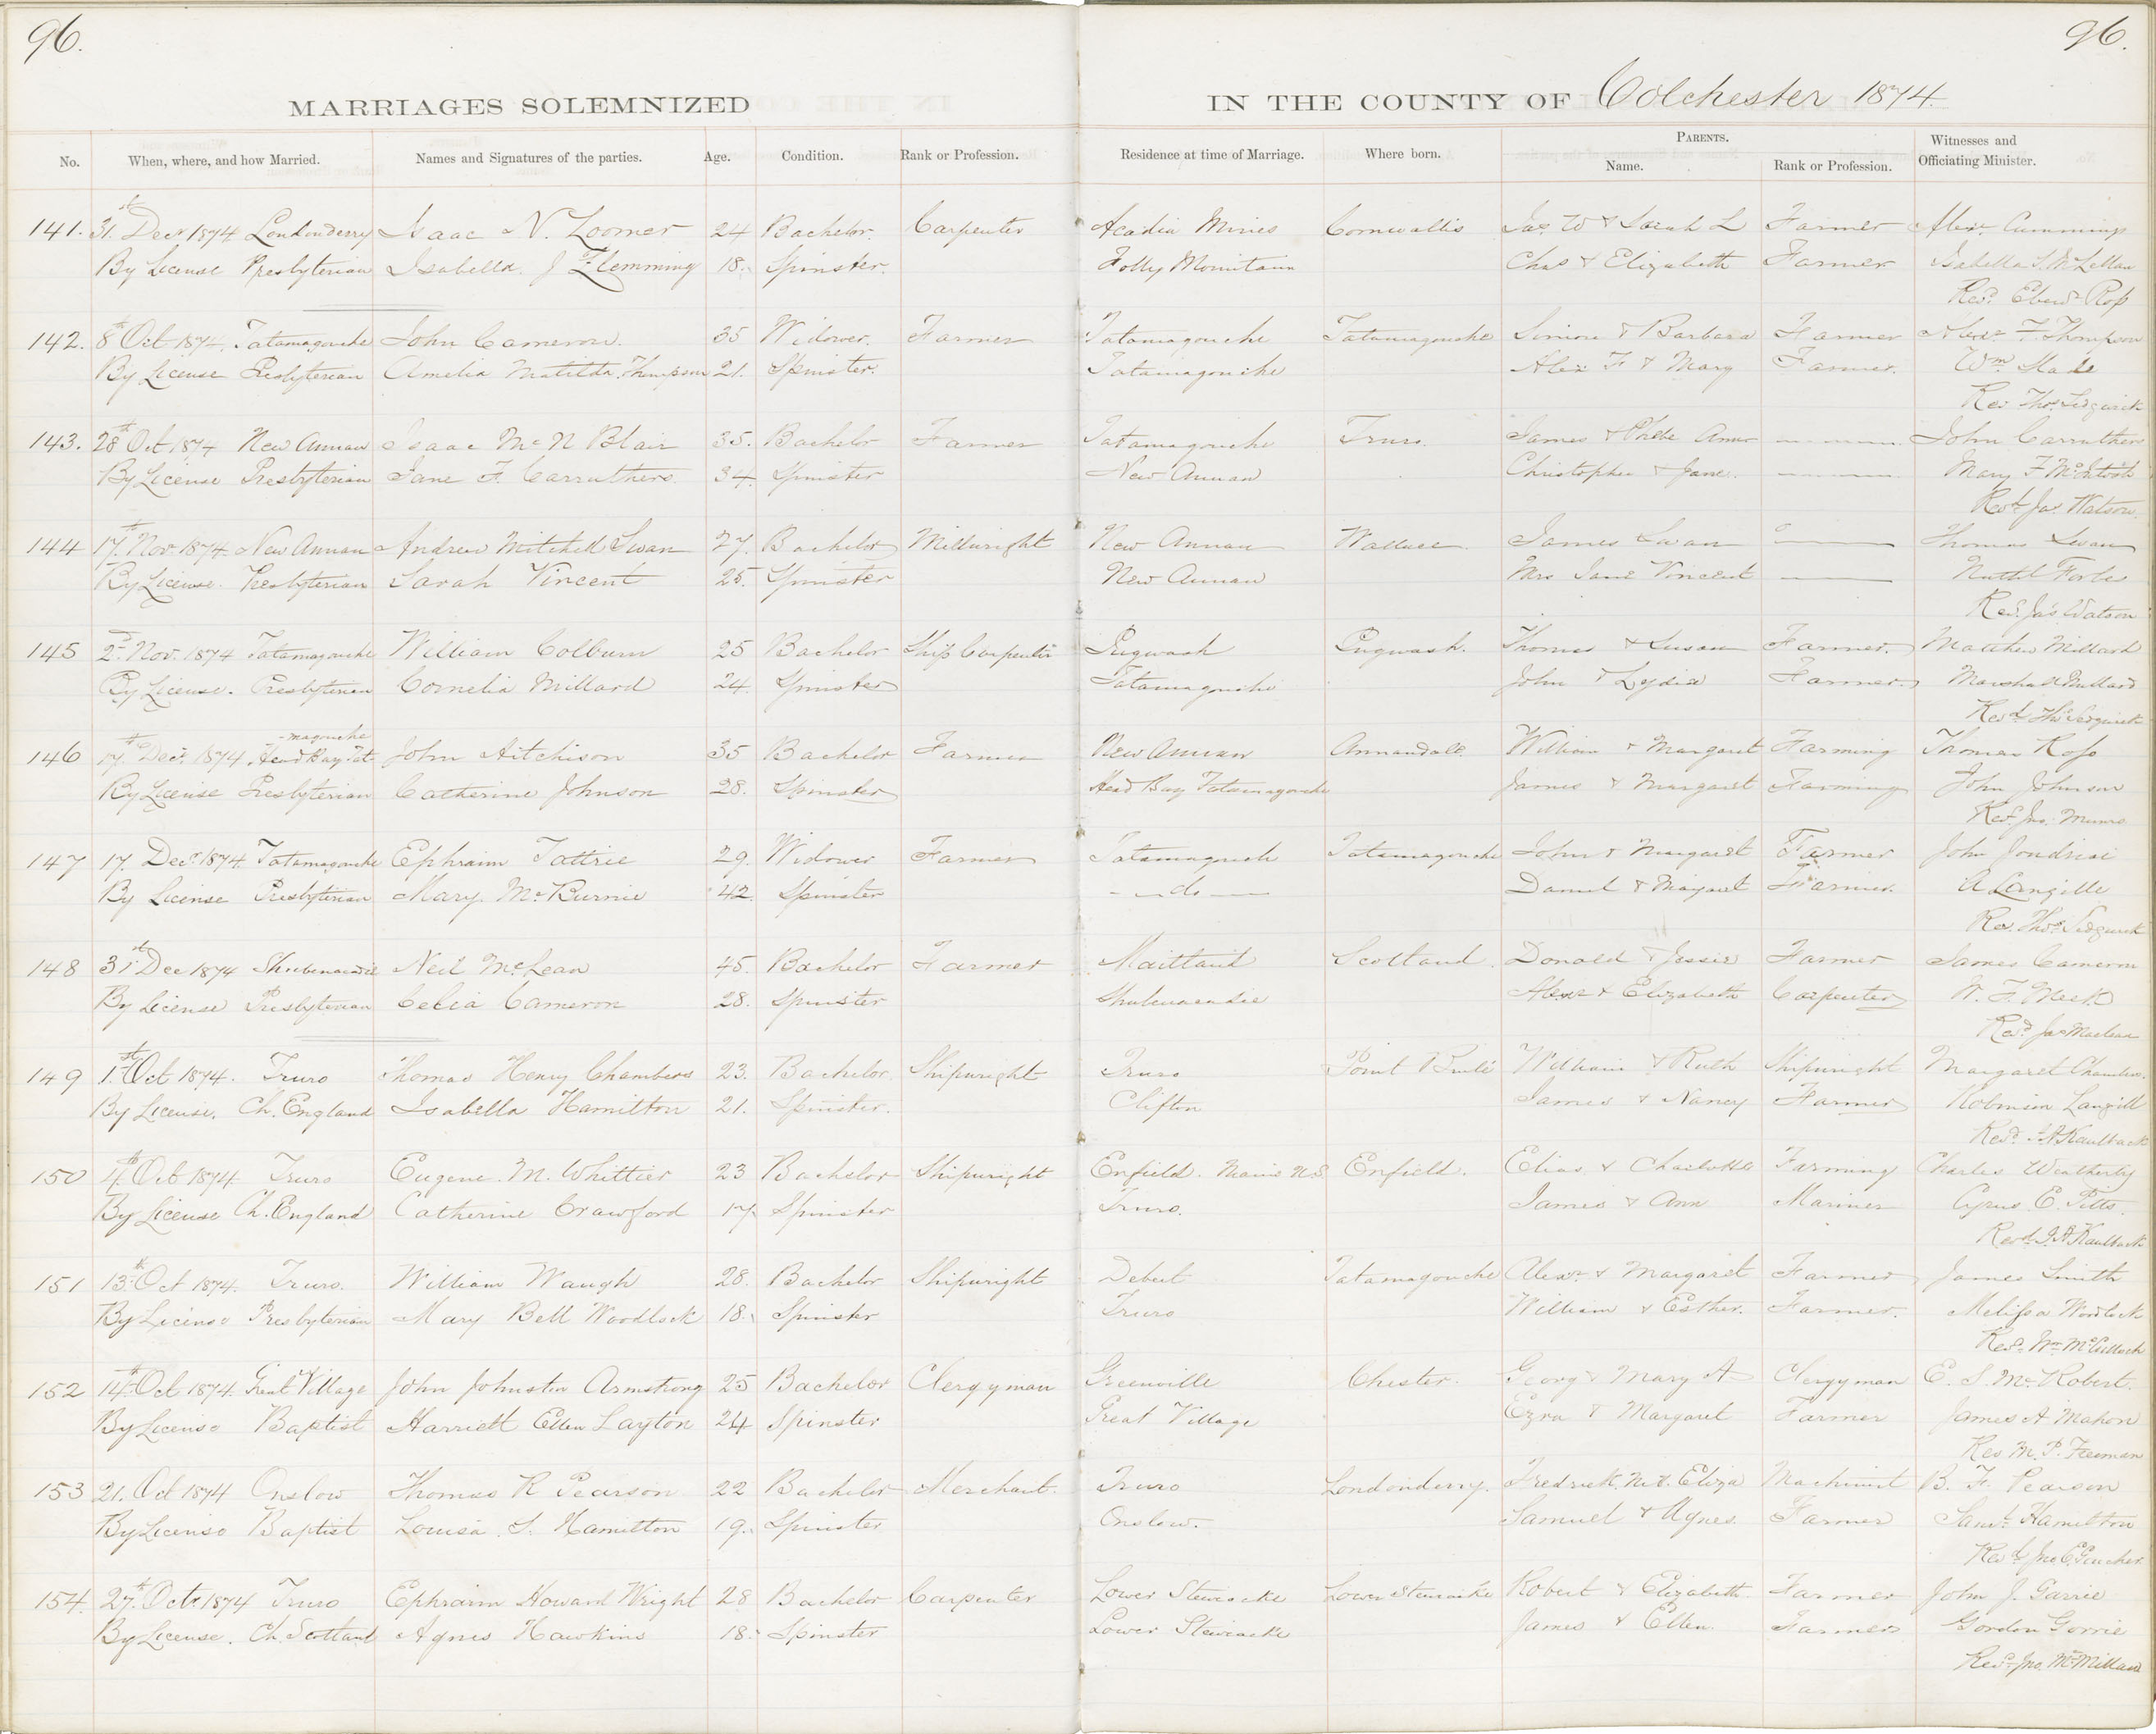 96.
96.
MARRIAGES SOLEMNIZED
IN THE COUNTY OF Colchester 1874
No. When, where, and how Married. Names and Signatures of the parties. Age. Condition. Rank or Profession. Residence at time of Marriage. Where born. PARENTS. Name. Rank or Profession. Witnesses and Officiating Minister.
141. 31st Decr 1874 Londonderry Isaac N. Loomer 24 Bachelor. Carpenter Acadia Mines Cornwallis Jas. W & Sarah L Farmer Alexr Cummings
By License Presbyterian Isabella J Flemming 18. Spinster. Folly Mountain Chas & Elizabeth Farmer Isabella S. McLellan
Revd. Ebenr Ross
142. 8th Oct 1874. Tatamagouche John Cameron. 35 Widower. Farmer Tatamagouche Tatamagouche Simon & Barbara Farmer Alexr F. Thompson
By License Presbyterian Amelia Matilda Thompson 21. Spinster. Tatamagouche Alex F & Mary Farmer. Wm
Rev Thos. Sedgwick
143. 28th Oct 1874 New Annan Isaac McN Blair 35. Bachelor Farmer Tatamagouche Truro. James & Phebe Ann John Carruthers
By License Presbyterian Jane F. Carruthers 34 Spinster New Annan Christopher & Jane. Mary F McIntosh
Revd. Jas. Watson.
144 17th. Nov. 1874 New Annan Andrew Mitchell Swan 27. Bachelor Millwright New Annan Wallace James Swan Thomas Swan
By License. Presbyterian Sarah Vincent 25. Spinster New Annan Mrs Jane Vincent
Revd. Jas Watson
145 2nd. Nov. 1874 Tatamagouche William Colburn 25 Bachelor Ship Carpenter Pugwash Pugwash. Thomas & Susan Farmer. Matthew Millard
By License. Presbyterian Cornelia Millard 24. Spinster Tatamagouche John & Lydia Farmer. Marshall Millard
Revd. Thos Sedgwick
-magouche
146 17th Decr. 1874. Head Bay Tat John Aitchison 35 Bachelor Farmer New Annan Annandale. William & Margaret Farming Thomas Ross
By License Presbyterian Catherine Johnson 28. Spinster Head Bay Tatamagouche James & Margaret Farming John Johnson
Revd. Jno. Munro
147 17. Decr. 1874 Tatamagouche Ephraim Tattrie 29. Widower Farmer Tatamagouche Tatamagouche John & Margaret Farmer John
By License Presbyterian Mary McBurnie 42. Spinster — do — Daniel & Margaret Farmer. A Langille
Rev. Thos. Sedgwick
148 31st Dec 1874 Shubenacadie Neil McLean 45. Bachelor Farmer Maitland Scotland. Donald & Jessie Farmer James Cameron
By License Presbyterian Celia Cameron 28. Spinster Shubenacadie Alexr & Elizabeth Carpenter
Revd Jas Maclean
149 1st. Oct 1874. Truro Thomas Henry Chambers 23. Bachelor Shipwright Truro Point Brulé William & Ruth Shipwright Margaret Chambers.
By License. Ch. England Isabella Hamilton 21. Spinster. Clifton James & Nancy Farmer Robinson Langill
Revd. J A Kaulback
150 4th Oct 1874 Truro Eugene. M. Whittier 23 Bachelor Shipwright Enfield. Enfield. Elias & Charlotte Farming Charles Weatherby
By License Ch. England Catherine Crawford 17. Spinster Truro. James & Ann Mariner Cyrus E. Pitts.
Revd. J. A Kaulback
151 13th Oct 1874. Truro. William Waugh 28. Bachelor Shipwright Debert Tatamagouche Alexr. & Margaret Farmer James Smith
By License Presbyterian Mary Bell Woodlock 18. Spinster Truro William & Esther. Farmer. Melissa Woodlock
Revd. Wm McCulloch
152 14th Oct 1874. Great Village John Johnston Armstrong 25 Bachelor Clergyman Greenville Chester. Georg & Mary A Clergyman E. S. McRobert.
By License Baptist Harriett Ellen Layton 24 Spinster Great Village Ezra & Margaret Farmer James A Mahon
Rev M. P. Freeman
153 21. Oct 1874 Onslow Thomas R Pearson 22 Bachelor Merchant. Truro Londonderry. Fredrick Eliza Machinist B. F. Pearson
By License Baptist Louisa. S. Hamilton 19. Spinster Onslow. Samuel & Agnes. Farmer Saml. Hamilton
Revd Jno E Goucher
154. 27th. Octr 1874 Truro Ephraim Howard Wright 28 Bachelor Carpenter Lower Stewiacke Lower Stewiacke Robert & Elizabeth Farmer John J. Garrie
By License. Ch. Scotland Agnes Hawkins 18. Spinster Lower Stewiacke James & Ellen. Farmer Gordon Gorrie
Revd. Jno. McMillan